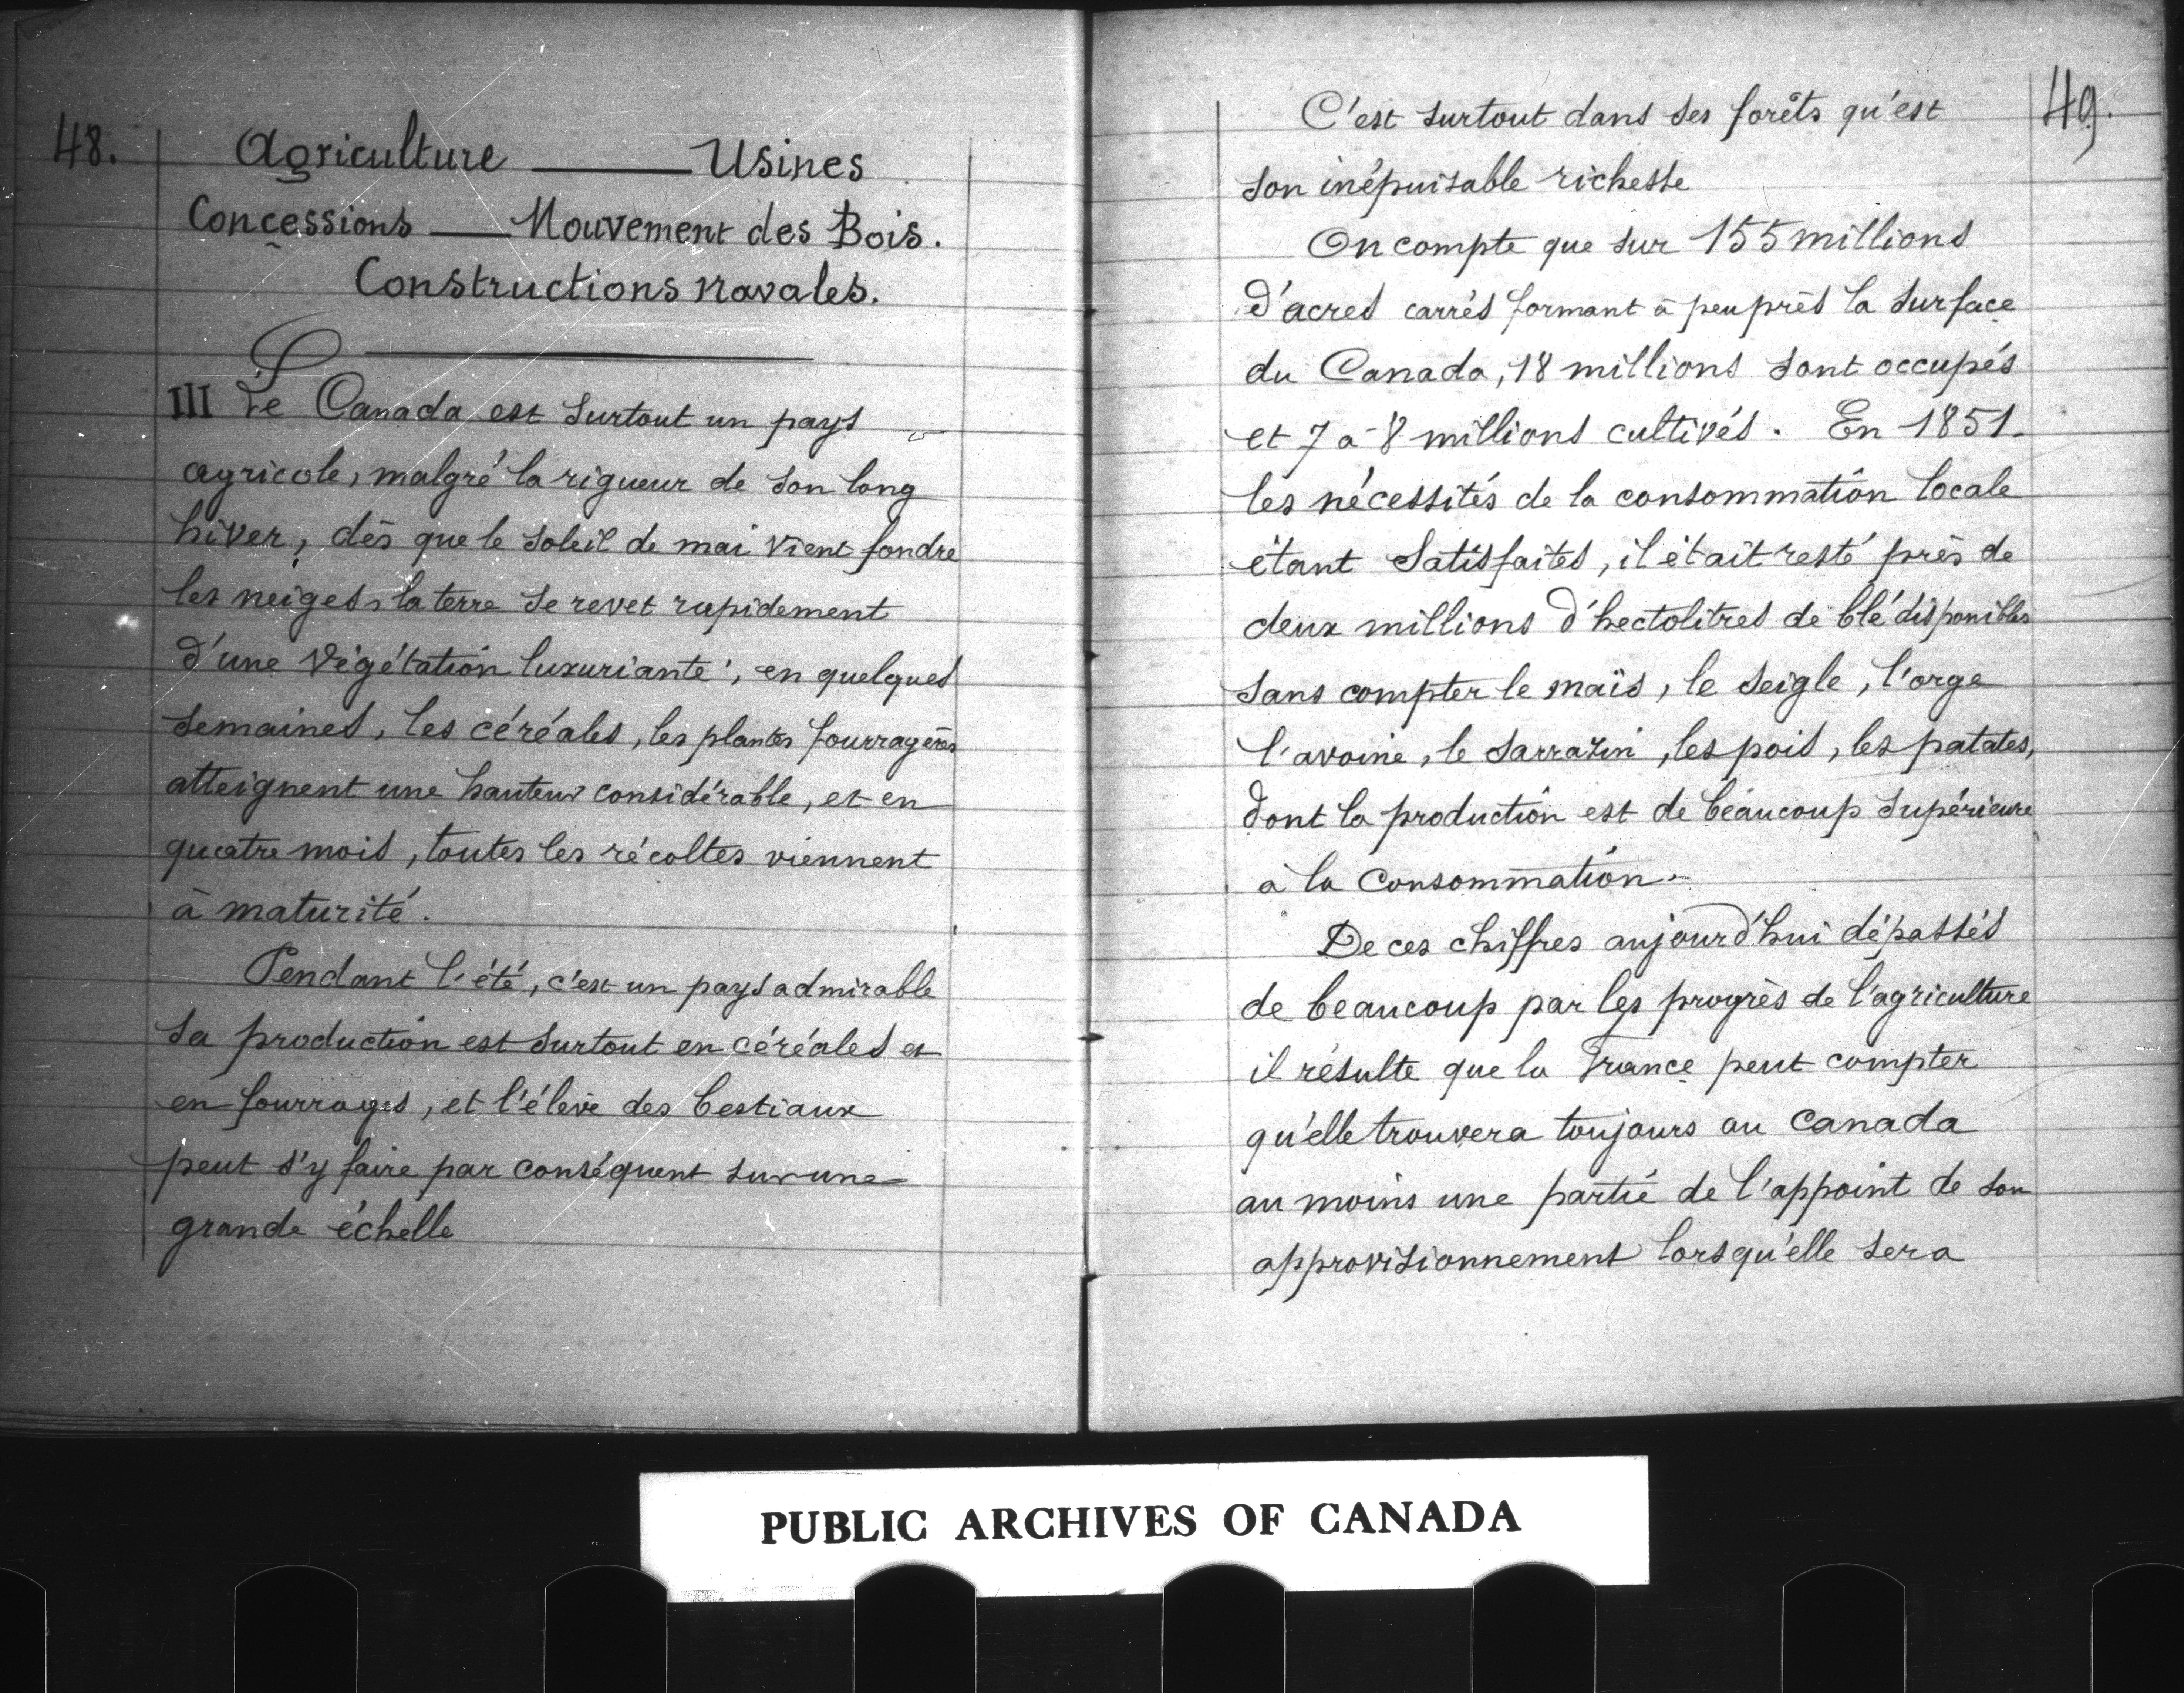 48.
Agriculture — Usines
Concessions — Mouvement des Bois.
Constructions navales.
III Le Canada est surtout un pays
agricole, malgré la rigueur de son long
hiver, dès que le soleil de mai vient fondre
les neiges, la terre se revet rapidement
d'une végétation luxuriante ; en quelques
semaines, les céréales, les plantes fourragères
atteignent une hauteur considérable, et en
quatre mois, toutes les récoltes viennent
à maturité.
Pendant l'été, c'est un pays admirable
sa production est surtout en céréales et
en fourrages, et l'élève des bestiaux
peut s'y faire par conséquent sur une
grande échelle
49.
C'est surtout dans ses forêts qu'est
son inépuisable richesse
On compte que sur 155 millions
d'acres carrés formant à peu près la surface
du Canada, 18 millions sont occupés
et 7 à 8 millions cultivés. En 1851.
les nécessités de la consommation locale
étant satisfaites, il était resté près de
deux millions d'hectolitres de blé disponibles
sans compter le maïs, le seigle, l'orge
l'avoine, le sarrazin, les pois, les patates,
dont la production est de beaucoup supérieure
à la consommation.
De ces chiffres aujourd'hui dépassés
de beaucoup par les progrès de l'agriculture
il résulte que la France peut compter
qu'elle trouvera toujours au Canada
au moins une partie de l'appoint de son
approvisionnement lorsqu'elle sera
PUBLIC ARCHIVES OF CANADA